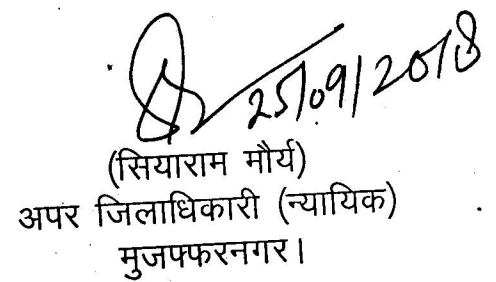 25/09/2018
(सियाराम मौर्य)
अपर जिलाधिकारी (न्यायिक)
मुजफ्फरनगर।